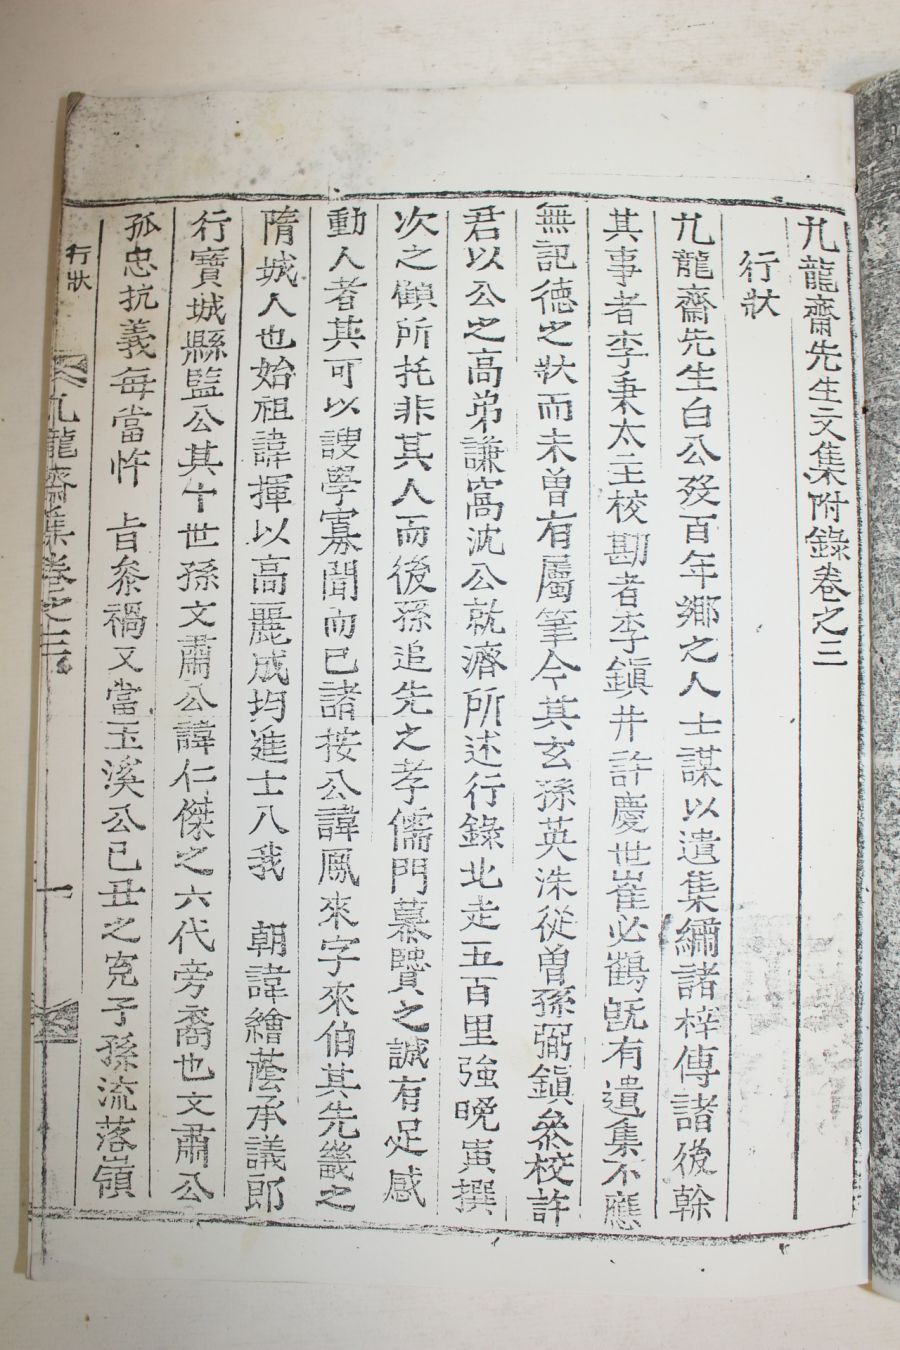 九龍齋先生文集附錄卷之三
行狀
九龍齋先生白公歿百年鄉之人士謀以遺集繡諸梓傳諸後幹
其事者李秉太主校勘者李鎭井許慶世崔必鶴旣有遺集不應
無記德之狀而未曾有屬筆今其玄孫英洙從曾孫弼鎭叅校許
君以公之高弟謙窩沈公就濟所述行錄北走五百里強晩寅撰
次之顧所托非其人而後孫追先之孝儒門慕賢之誠有足感
動人者其可以謏學寡聞而已諸按公諱鳳來字來伯其先畿之
隋城人也始祖諱揮以高麗成均進士入我 朝諱繪蔭承議郎
行寶城縣監公其十世孫文肅公諱仁傑之六代旁裔也文肅公
孤忠抗義每當忤 旨叅禍又當玉溪公己丑之寃子孫流落嶺
行狀
九龍齋集卷之三
一